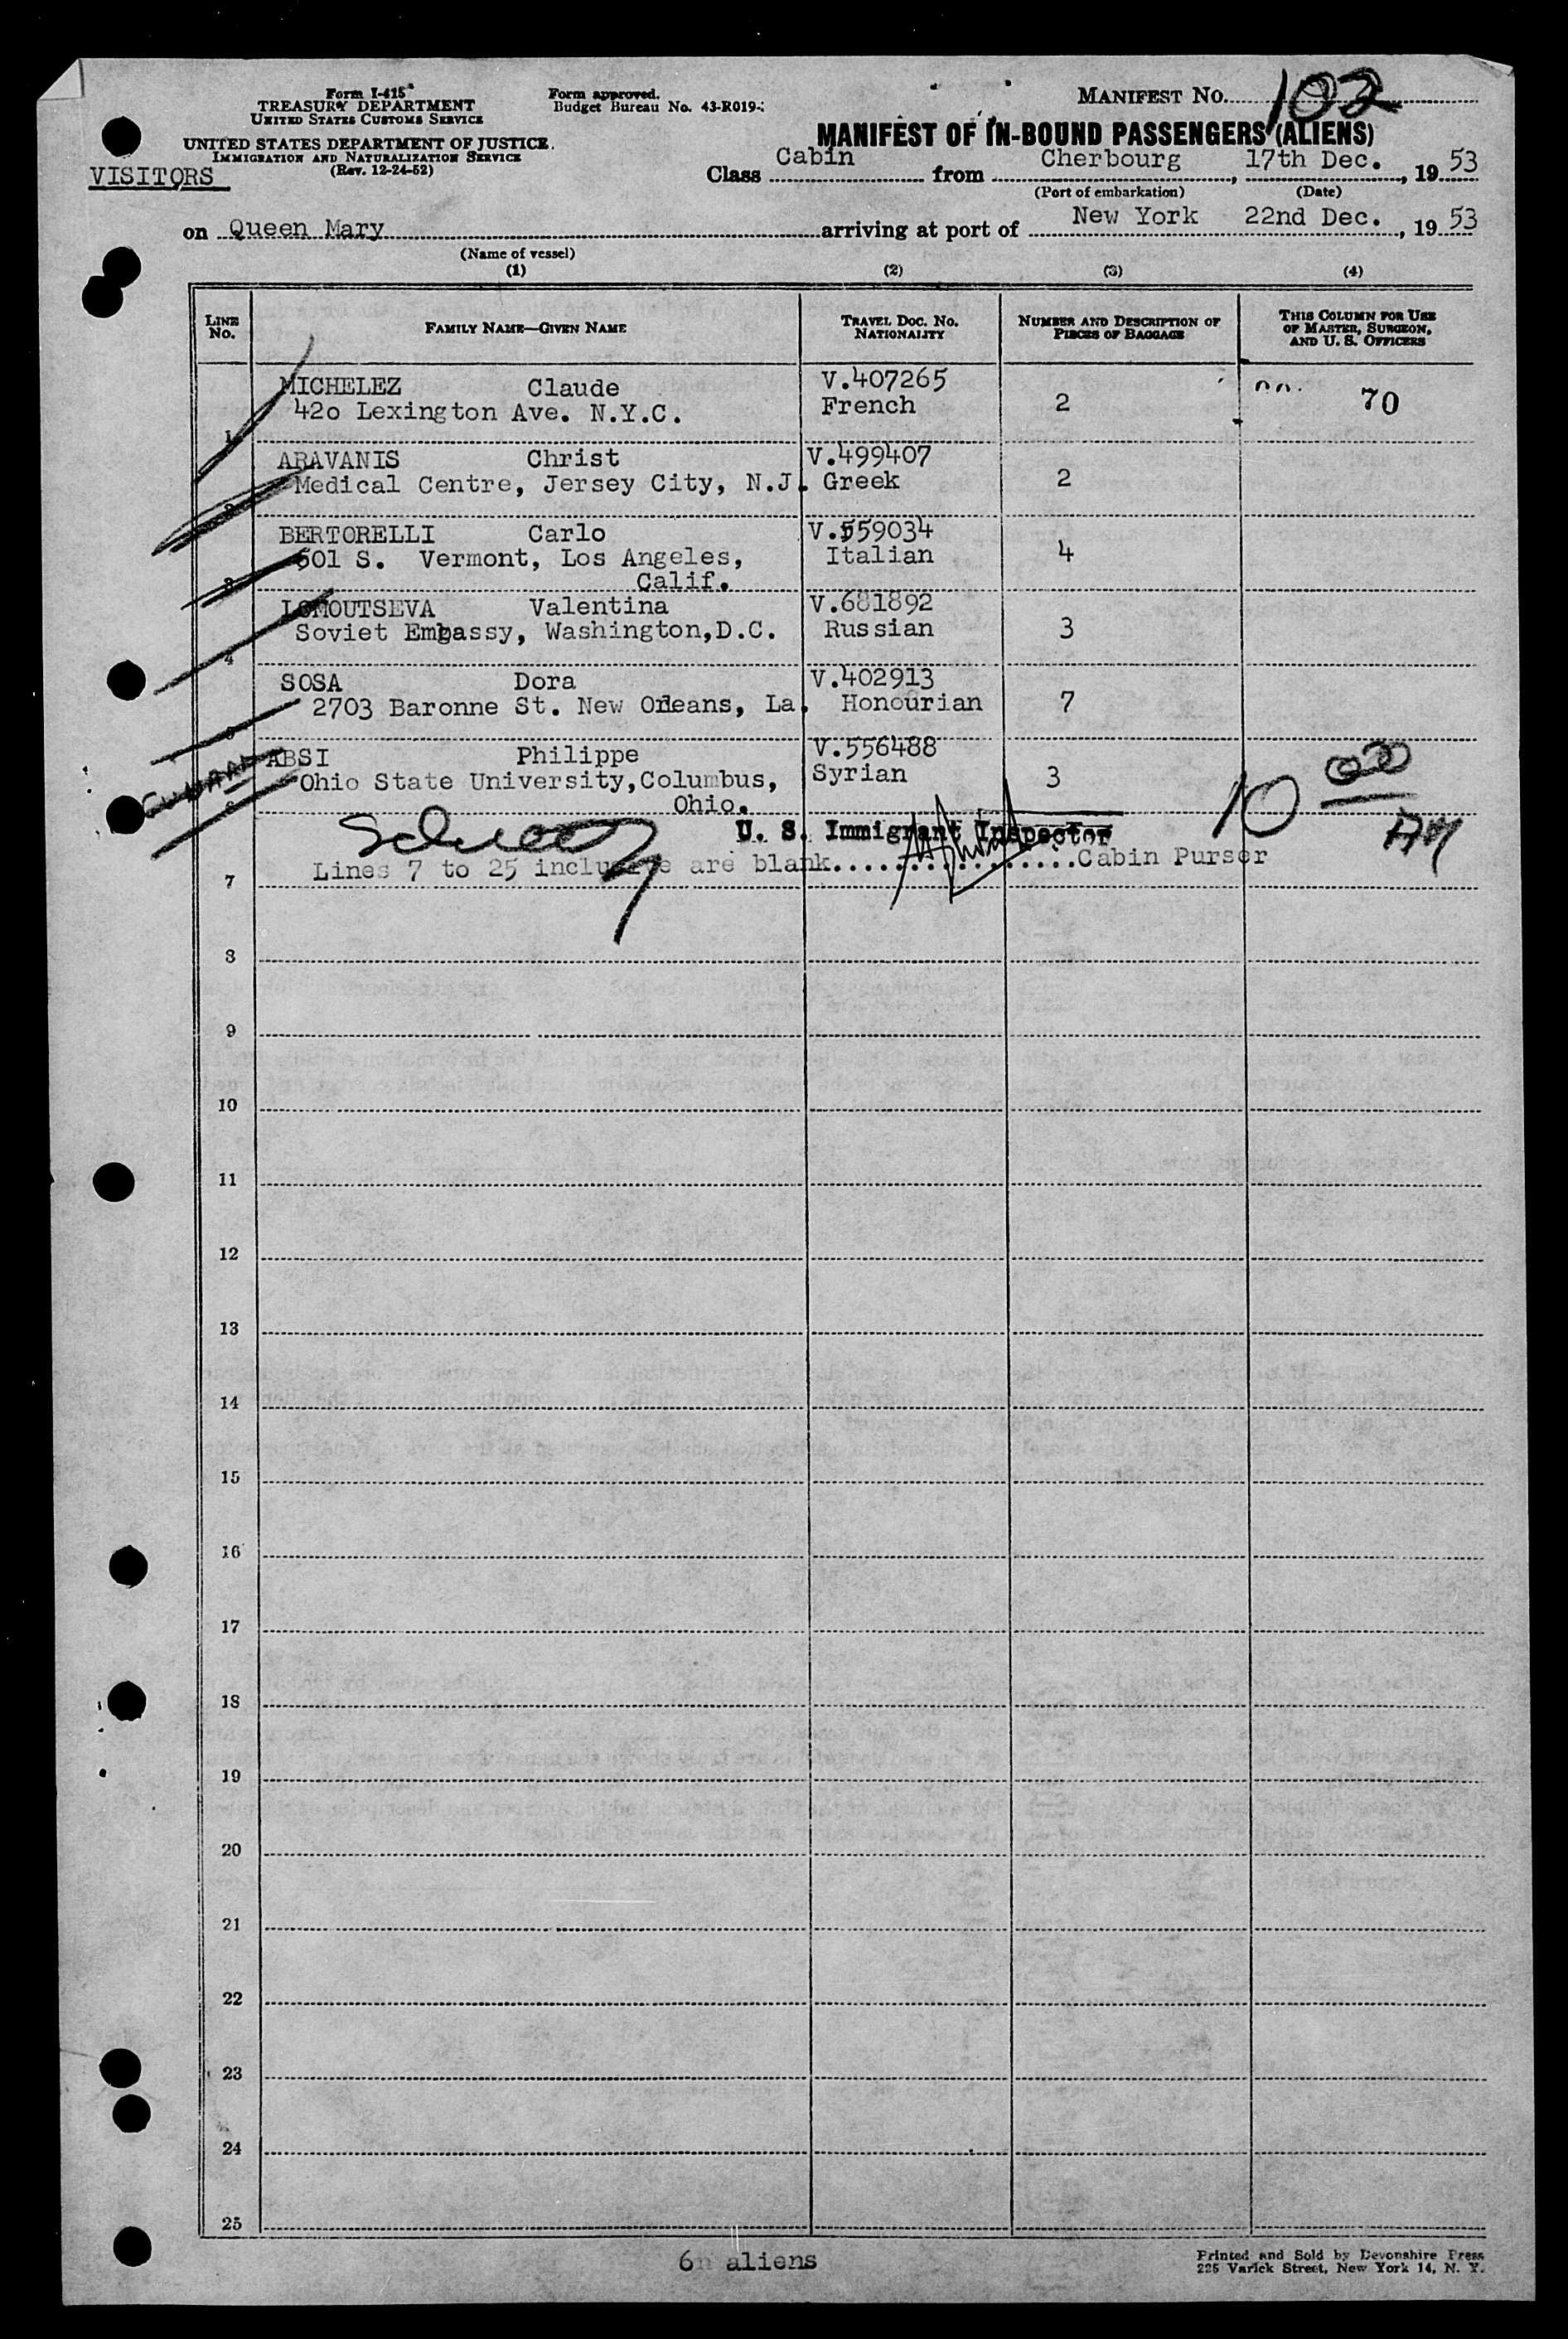 Form I-415
TREASURY DEPARTMENT
UNITED STATES CUSTOMS SERVICE
UNITED STATES DEPARTMENT OF JUSTICE.
IMMIGRATION AND NATURALIZATION SERVICE
(Rev. 12-24-52)
VISITORS
Form approved.
Budget Bureau No. 43-R019-
MANIFEST NO. 102
MANIFEST OF IN-BOUND PASSENGERS (ALIENS)
Class Cabin from Cherbourg, 17th Dec., 1953
(Port of embarkation) (Date)
on Queen Mary arriving at port of New York 22nd Dec., 1953
(Name of vessel)
(1) (2) (3) (4)
LINE NO. FAMILY NAME—GIVEN NAME TRAVEL DOC. NO. NATIONALITY NUMBER AND DESCRIPTION OF PIECES OF BAGGAGE THIS COLUMN FOR USE OF MASTER, SURGEON, AND U. S. OFFICERS
MICHELEZ Claude V.407265
1 420 Lexington Ave. N.Y.C. French 2 70
ARAVANIS Christ V.499407
2 Medical Centre, Jersey City, N.J. Greek 2
BERTORELLI Carlo V.559034
501 S. Vermont, Los Angeles, Italian 4
3 Calif.
LOMOUTSEVA Valentina V.681892
4 Soviet Embassy, Washington,D.C. Russian 3
SOSA Dora V.402913
5 2703 Baronne St. New Orleans, La. Honourian 7
ABSI Philippe V.556488
Ohio State University,Columbus, Syrian 3
6 Ohio.
10
U. S. Immigrant Inspector
7 Lines 7 to 25 inclusive are blank.................Cabin Purser
8
9
10
11
12
13
14
15
16
17
18
19
20
21
22
23
24
25
6 aliens
Printed and Sold by Devonshire Press
225 Varick Street, New York 14, N. Y.